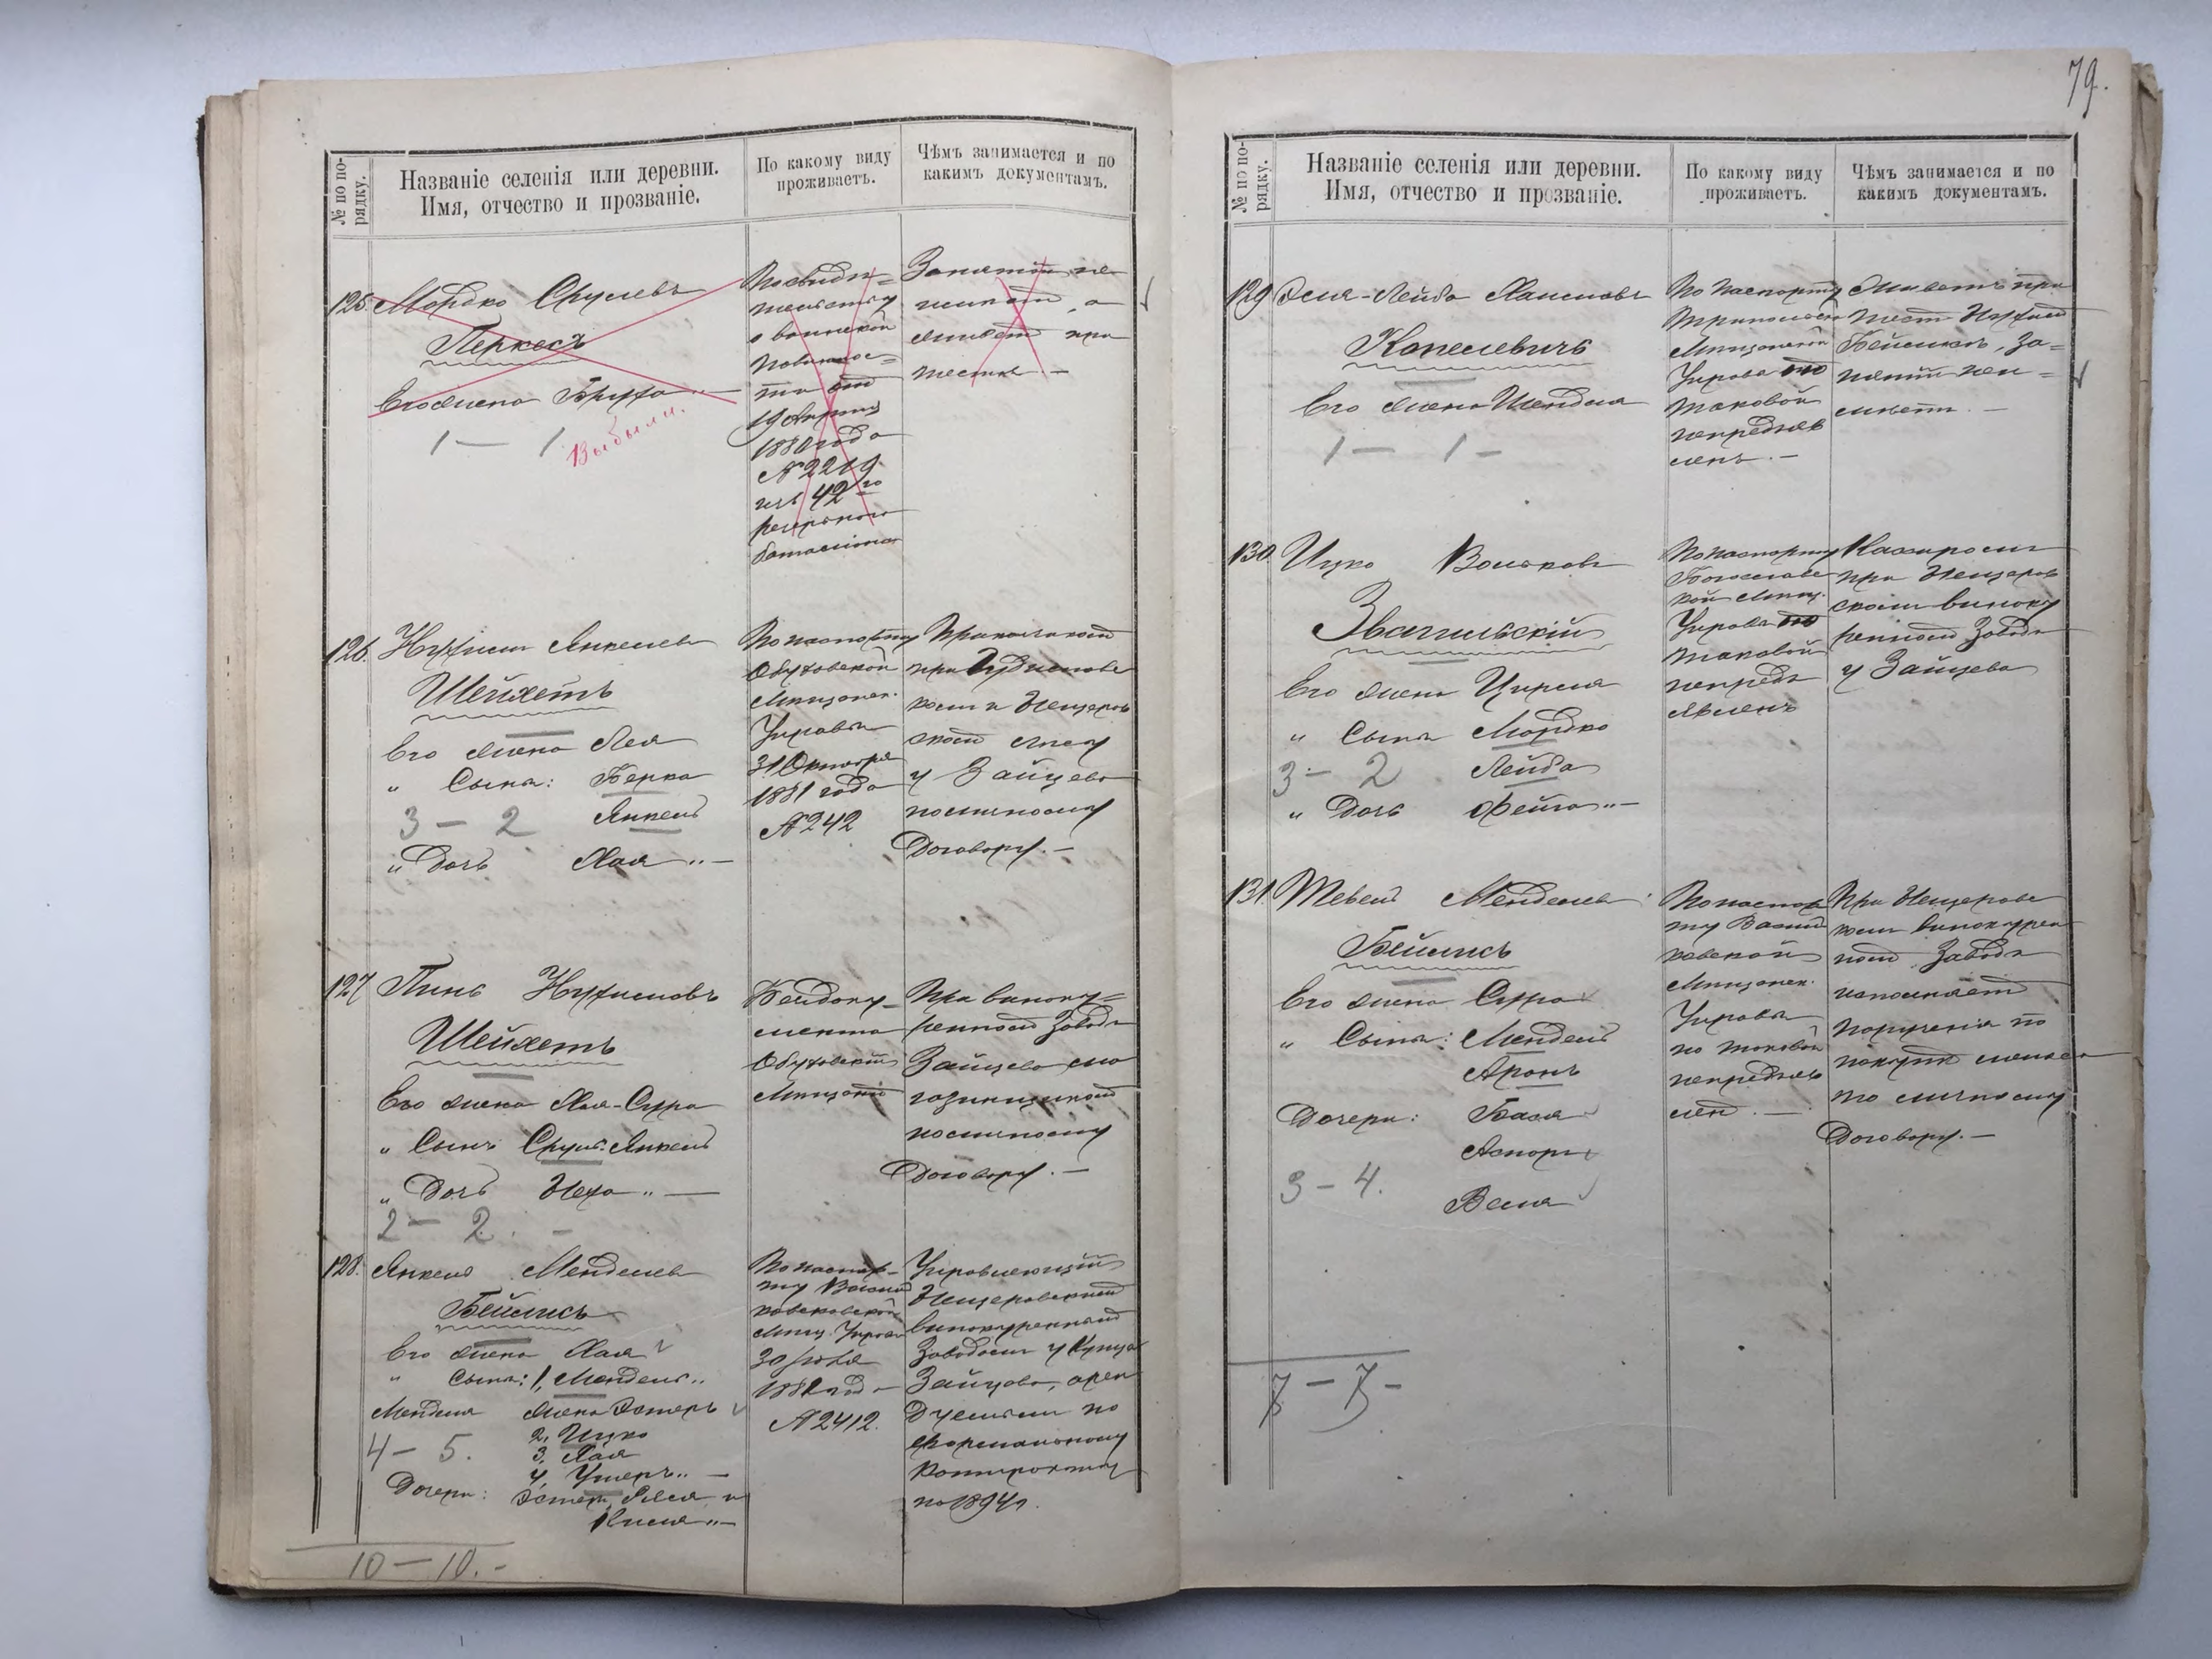 79.
№ по по-
рядку.
Названіе селенія или деревни.
Имя, отчество и прозваніе.
По какому виду
проживаетъ.
Чѣмъ занимается и по
какимъ документамъ.
125. Мордко Срулевъ
Перкесъ
Его жена Бруха
1 — 1
Выбыли.
По свидѣ=
тельству
о воинской
повиннос=
ти отъ
19 Апрѣля
1880 года
№ 2219
изъ 42го
резервного
баталіона
Занятій не
имѣетъ, а
живетъ при
тестѣ. —
126. Нухимъ Янкелевъ
Шейхетъ
Его жена Лея
" Сыны: Берко
3 — 2 Янкель
" Дочь Хая " —
По паспорту
Обуховской
Мѣщанск.
Управы
31 Октября
1881 года
№ 242
Прикащикомъ
при
и Нещеров
скомъ лѣсу
у Зайцева
по личному
Договору. —
127 Пинь Нухимовъ
Шейхетъ
Его жена Хая-Сура
" Сынъ Сруль-Янкель
" Дочь Неха " —
2 — 2. —
Без доку-
мента
Обуховскій
Мѣщанинъ
При виноку=
ренномъ заводѣ
Зайцева ма
газинщикомъ
по личному
Договору. —
128. Янкель Менделевъ
Бейлисъ
Его жена Хая
" Сыны: 1, Мендель "
Менделя жена Эстеръ
2, Ицко
4 — 5. 3, Хая
4, Ушеръ " —
Дочери: Эстеръ, и
10 — 10. -
По паспор-
ту Василь
ковской
Мѣщ. Управы
30 Іюля
188 года
№ 2412.
Управляющій
Нещеровскимъ
винокуреннымъ
Заводомъ у Купца
Зайцева, арен
Дуемымъ по
формальному
контракту
по 1894 г.
№ по по-
рядку.
Названіе селенія или деревни.
Имя, отчество и прозваніе.
По какому виду
проживаетъ.
Чѣмъ занимается и по
какимъ документамъ.
129 Эля-Лейба Хаимовъ
Копелевичъ
Его жена Шендля
1 — 1 —
По паспорту
Трипольской
Мѣщанской
Управы но
таковой
непредъяв
ленъ. —
Живетъ при
тестѣ
Бейлисѣ, за=
нятій неи=
мѣетъ. —
130. Ицко Вольковъ
Звагильскій
Его жена Цирля
" Сыны Мордко
3 — 2 Лейба
" Дочь Фейга " —
По паспорту
Богуславс
кой Мѣщ.
Управы но
таковой
непредъ
явленъ
Кассиромъ
при Нещеров
скомъ виноку
ренномъ Заводѣ
у Зайцева
131. Тевель Менделевъ
Бейлисъ
Его жена Сура
" Сыны: Мендель
Аронъ
Дочери: Бася
3 — 4.
Веля
По паспор
ту Василь
ковской
Мѣщанск.
Управы
но таковой
непредъяв
ленъ. —
При Нещеровс
комъ винокурен
номъ Заводѣ
исполняетъ
порученія по
покупкѣ
по личному
Договору. —
7 — 7 —